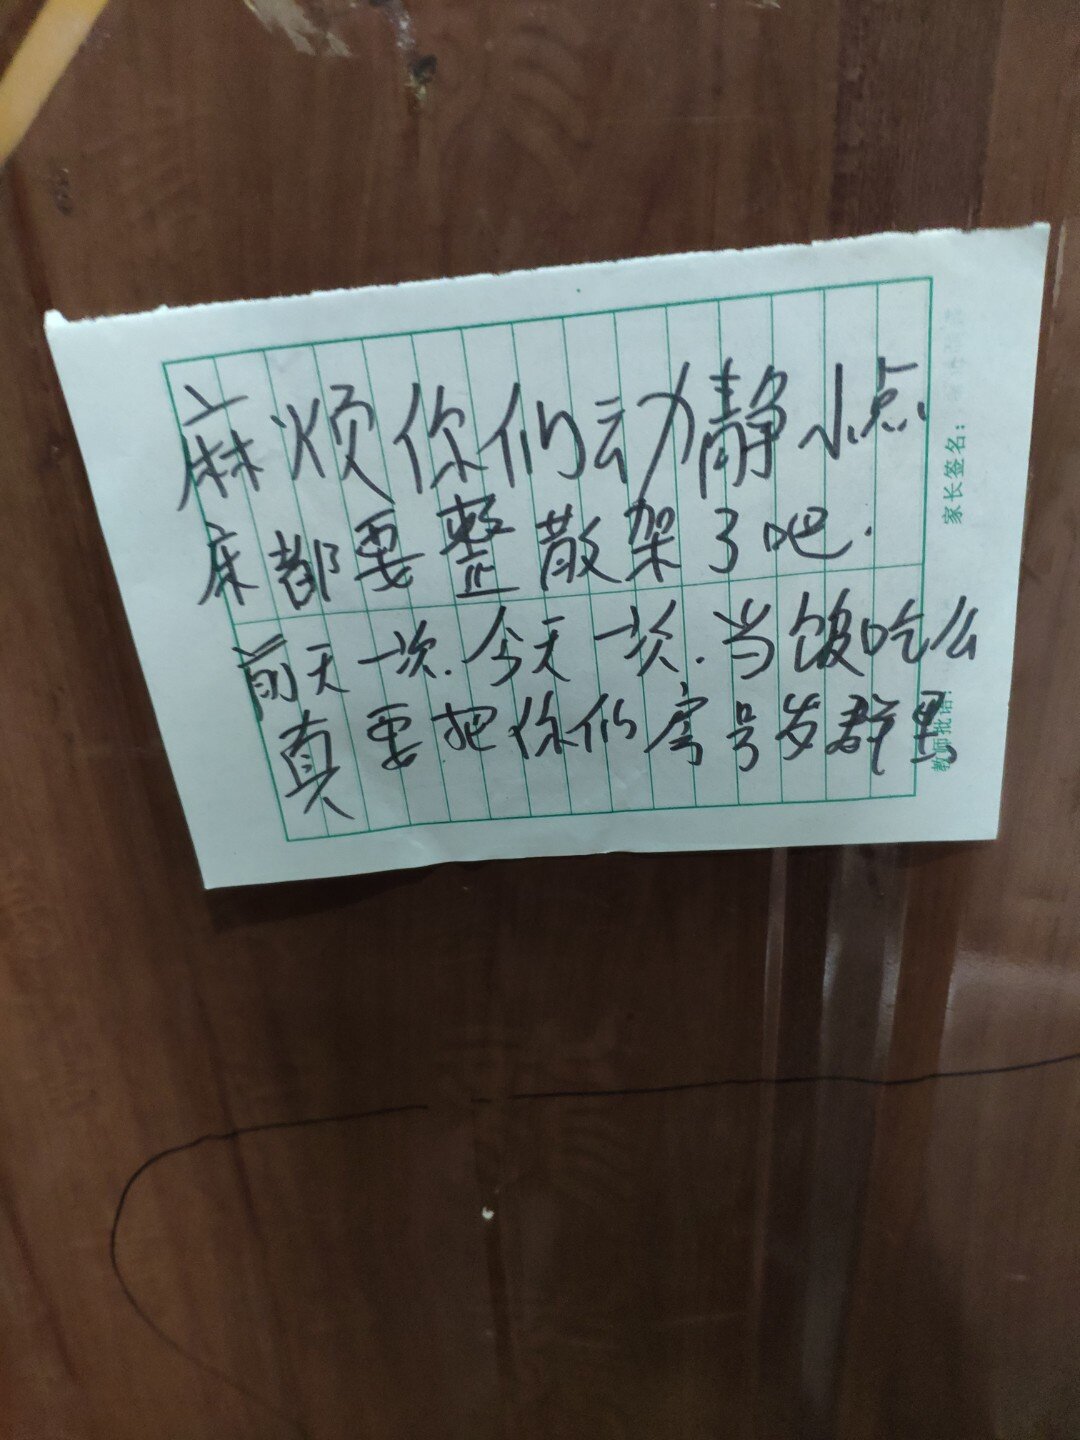 麻烦你们动静小点
床都要整散架了吧.
前天一次.今天一次.当饭吃么
真要把你们房号发群里
家长签名：
教师批语：